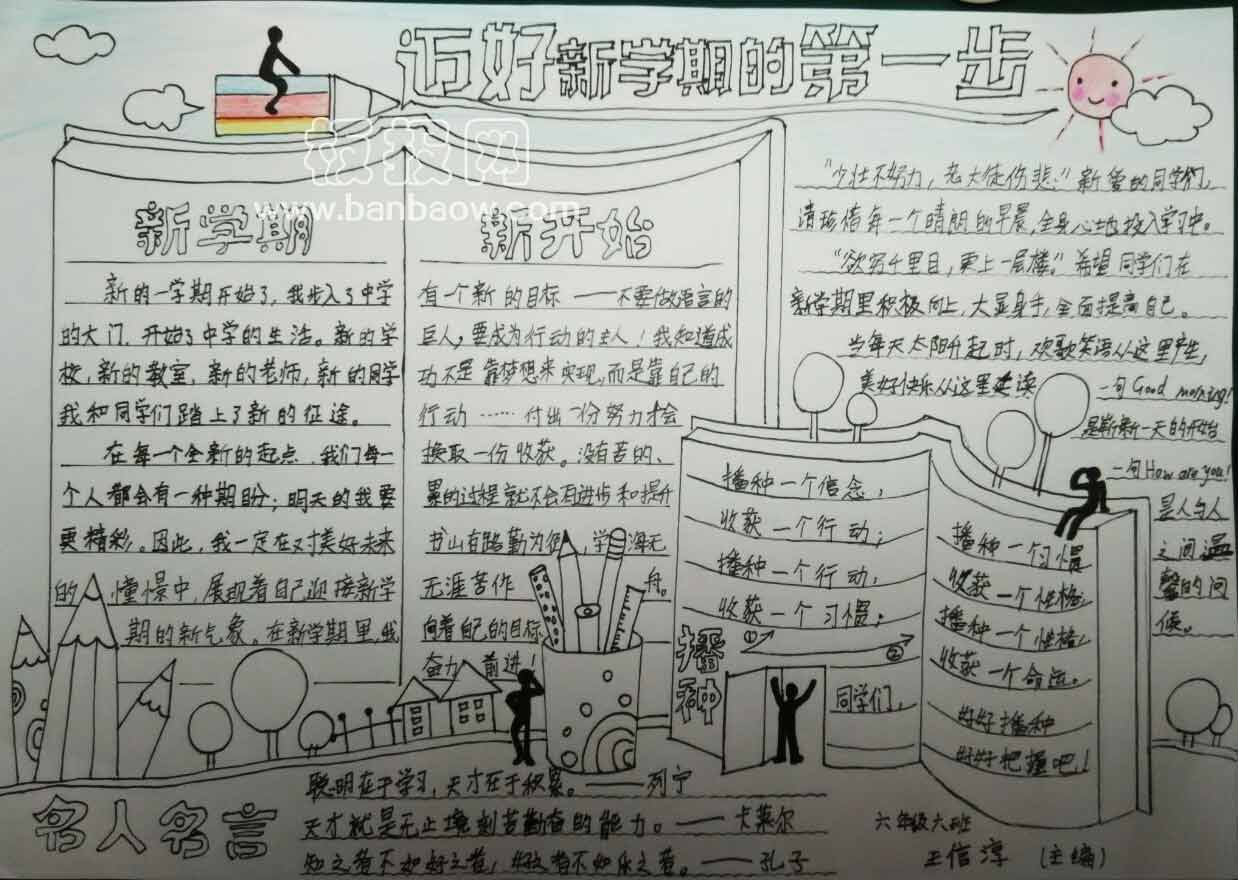 迈好新学期的第一步
板报网
www.banbaow.com
新学期
新的一学期开始了,我步入了中学
的大门.开始了中学的生活。新的学
校,新的教室,新的老师,新的同学
我和同学们踏上了新的征途。
在每一个全新的起点,我们每一
个人都会有一种期盼;明天的我要
更精彩。因此,我一定在对美好未来
的憧憬中,展现着自己迎接新学
期的新气象。在新学期里我
新开始
有一个新的目标——不要做语言的
巨人,要成为行动的主人!我知道成
功不是靠梦想来实现,而是靠自己的
行动……付出一份努力才会
换取一份收获。没有苦的、
累的过程就不会有进步和提升
书山有路勤为径,学海无
无涯苦作舟。
向着自己的目标
奋力前进!
“少壮不努力,老大徒伤悲.”新爱的同学们,
请珍惜每一个晴朗的早晨,全身心地投入学习中。
“欲穷千里目,更上一层楼.”希望同学们在
新学期里积极向上,大显身手,全面提高自己。
当每天太阳升起时,欢歌笑语从这里产生,
美好快乐从这里
一句Good morning!
是崭新一天的开始
一句How are you!
是人与人
之间温
馨的问
候。
播种
播种一个信念,
收获一个行动;
播种一个行动,
收获一个习惯;
① ②
同学们,
播种一个习惯
收获一个性格;
播种一个性格,
收获一个命运。
好好播种
好好把握吧!
名人名言
聪明在于学习,天才在于积累。——列宁
天才就是无止境刻苦勤奋的能力。——卡莱尔
知之者不如好之者,好之者不如乐之者。——孔子
六年级六班
王信淳 (主编)